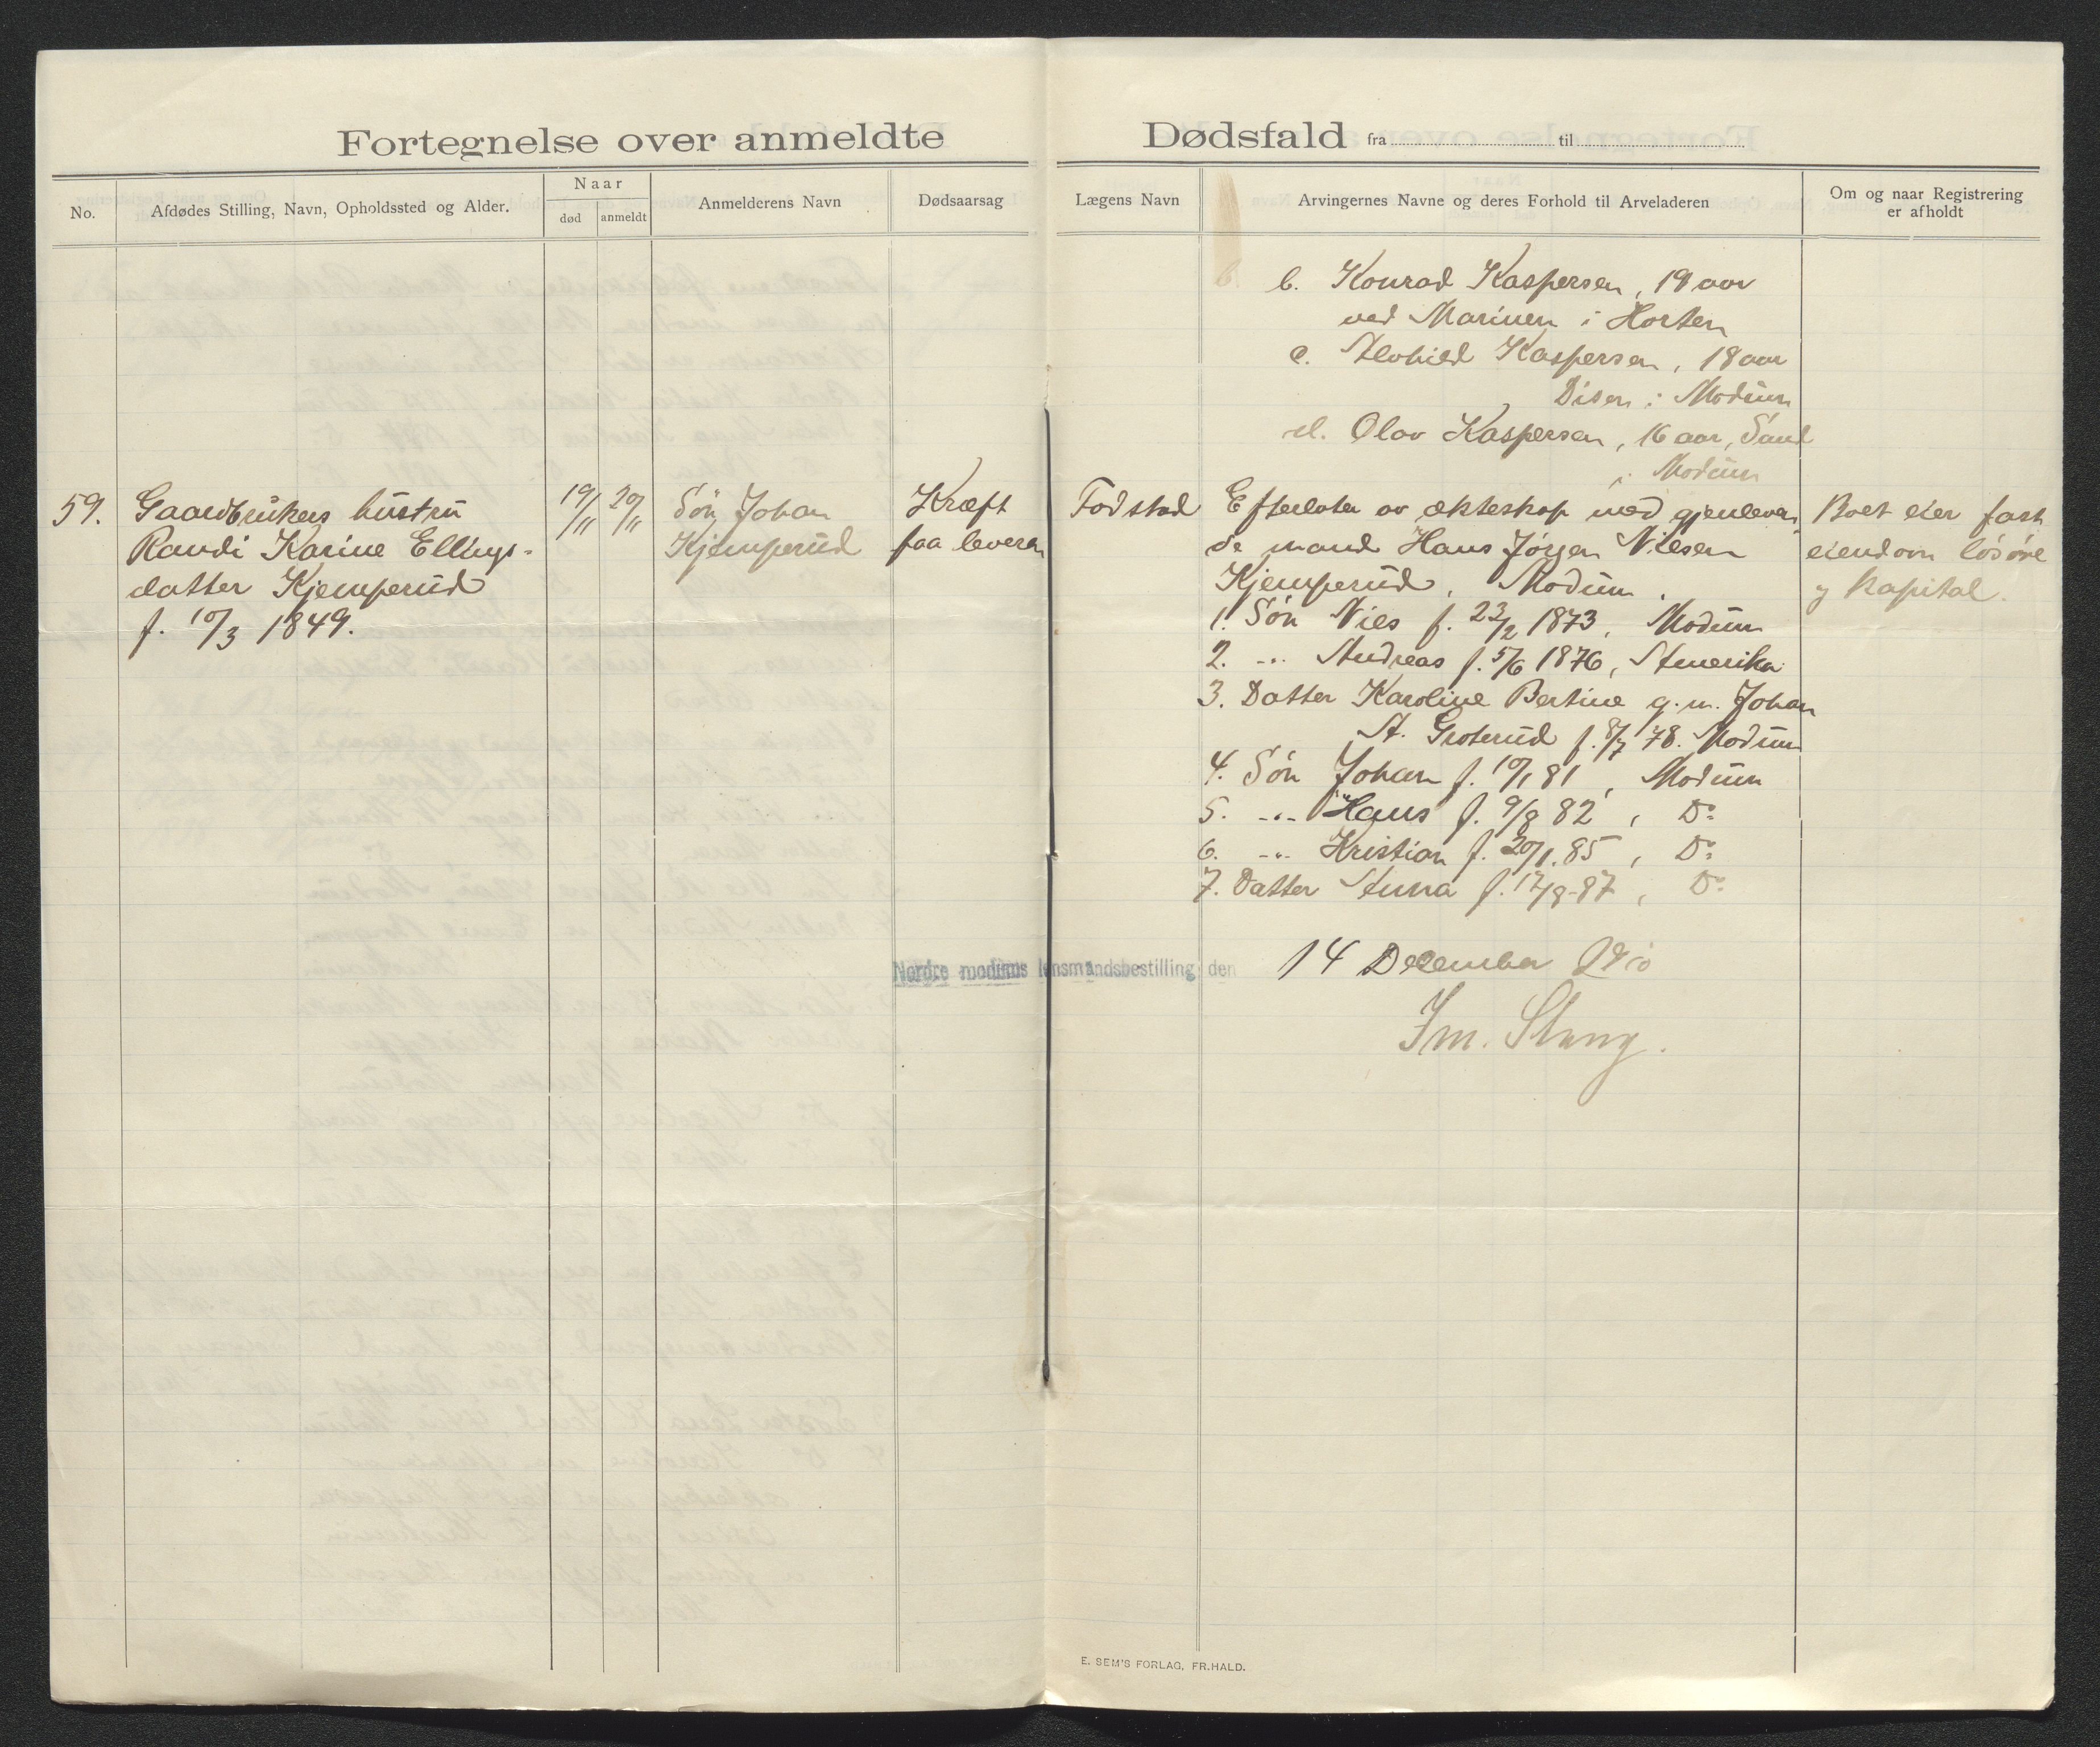 Fortegnelse over anmeldte Dødsfald fra til
No.
Afdødes Stilling, Navn, Opholdssted og Alder.
Naar
død
anmeldt
Anmelderens Navn
Dødsaarsag
Lægens Navn
Arvingernes Navne og deres Forhold til Arveladeren
Om og naar Registrering
er afholdt
b. Konrad Kaspersen, 19 aar
ved Marinen i Horten
c. Alvhild Kaspersen, 18 aar
Disen i Modum
d. Olav Kaspersen, 16 aar, Sand
i Modum
59.
Gaardbrukers hustru
Randi Karine Ellings-
datter Kjemperud
f. 10/3 1849.
19/11
20/11
Søn Johan
Kjemperud
Kræft
paa leveren
Fodstad
Efterlater av ekteskap med gjenleven
de mand Hans Jørgen Nilsen
Kjemperud, Modum.
1. Søn Nils f. 23/2 1873, Modum
2. -"- Andreas f. 5/6 1876, Amerika
3. Datter Karoline Bertine g.m. Johan
A. Groterud f. 8/7 78. Modum
4. Søn Johan f. 10/1 81, Modum
5. -"- Hans f. 9/8 82, Do
6. -"- Kristian f. 20/1. 85, Do
7. Datter Anna f. 17/8-87, Do
Boet eier fast
eiendom løsøre
og kapital.
Nordre modums lensmandsbestilling den 14 December 1910
Im. Stang.
E. SEM'S FORLAG, FR.HALD.